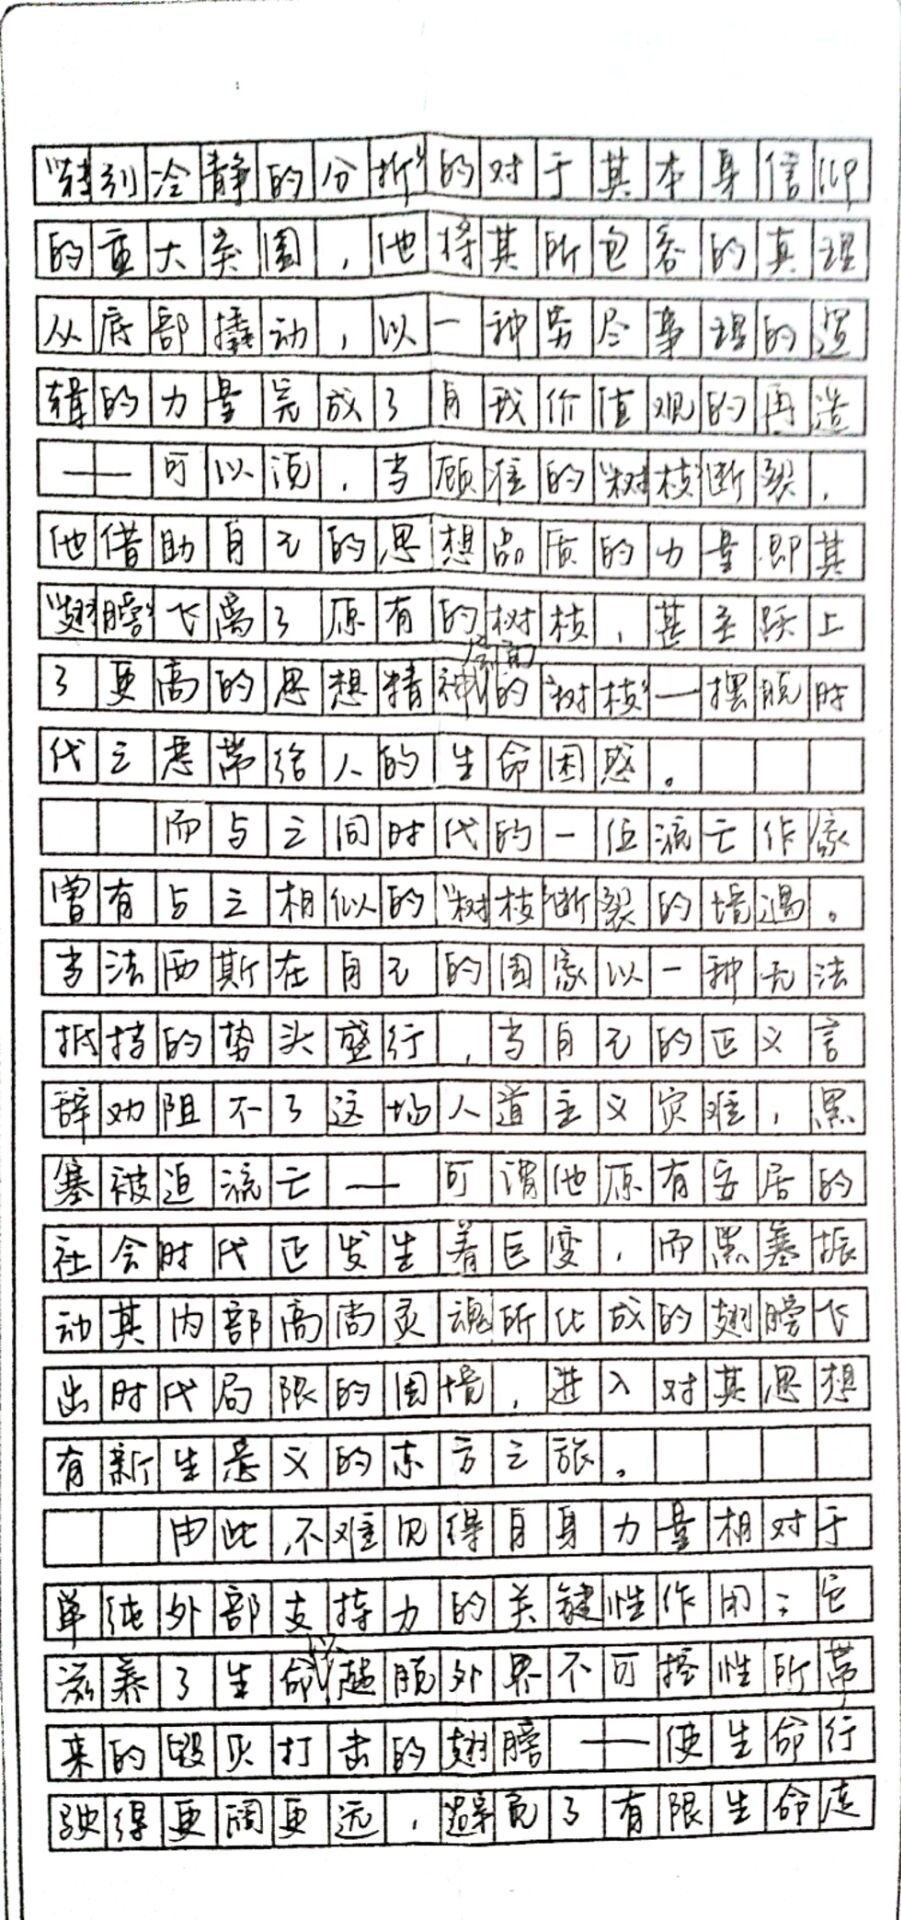 “特别冷静的分析”的对于其本身信仰
的重大突围，他将其所包容的真理
从底部撬动，以一种穷尽事理的逻
辑的力量完成了自我价值观的再造
——可以须，当顾准的“树枝”断裂，
他借助自己的思想品质的力量即其
“翅膀”飞离了原有的树枝，甚至跃上
了更高的思想精神层面的“树枝”—摆脱时
代之恶带给人的生命困惑。
而与之同时代的一位流亡作家
曾有与之相似的“树枝”断裂的境遇。
当法西斯在自己的国家以一种无法
抵挡的势头盛行，当自己的正义言
辞劝阻不了这场人道主义灾难，黑
塞被迫流亡——可谓他原有安居的
社会时代正发生着巨变，而黑塞振
动其内部高尚灵魂所化成的翅膀飞
出时代局限的围境，进入对其思想
有新生意义的东方之旅。
由此，不难见得自身力量相对于
单纯外部支持力的关键性作用：它
滋养了生命以超脱外界不可控性所带
来的毁灭打击的翅膀——使生命行
驶得更阔更远，避免了有限生命在